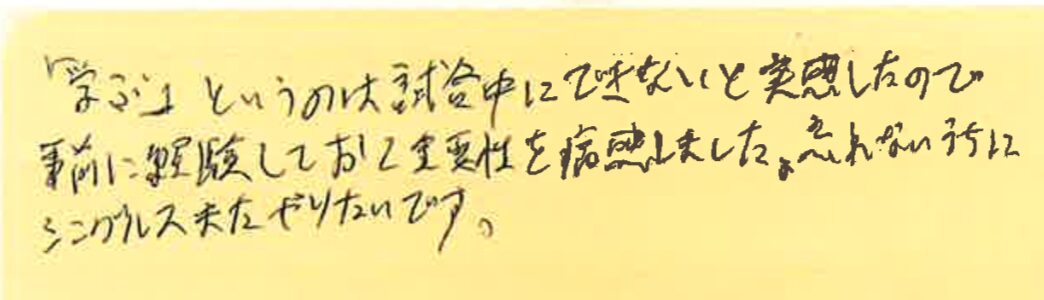 「学ぶ」というのは試合中にできないと実感したので
事前に経験しておく重要性を痛感しました。忘れないうちに
シングルスまたやりたいです。